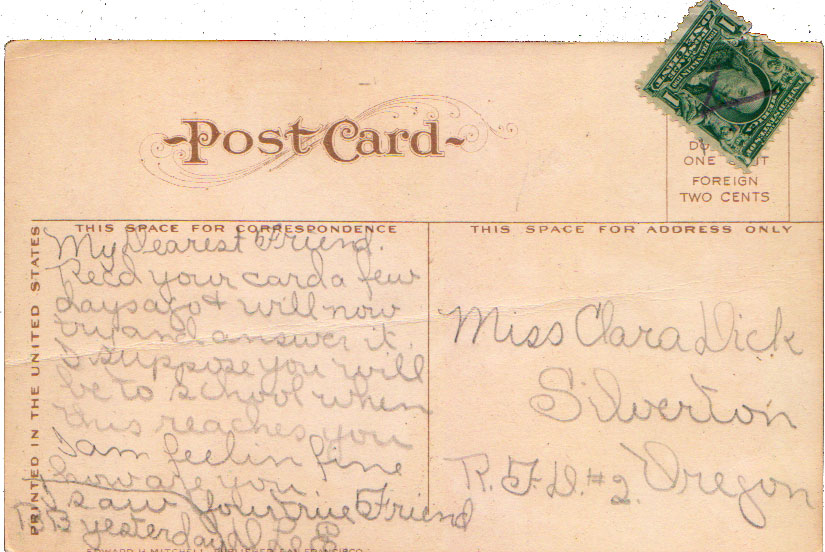 Post Card
DO
ONE
FOREIGN
TWO CENTS
THIS SPACE FOR CORRESPONDENCE
THIS SPACE FOR ADDRESS ONLY
PRINTED IN THE UNITED STATES
My Dearest Friend.
Recd your card a few
days ago & will now
try and answer it.
I suppose you will
be to school when
this reaches you
I am feelin fine
how are you
I saw Your true Friend
yesterday
Miss Clara Dick
Silverton
R.F.D.#2. Oregon
EDWARD H MITCHELL, PUBLISHER, SAN FRANCISCO